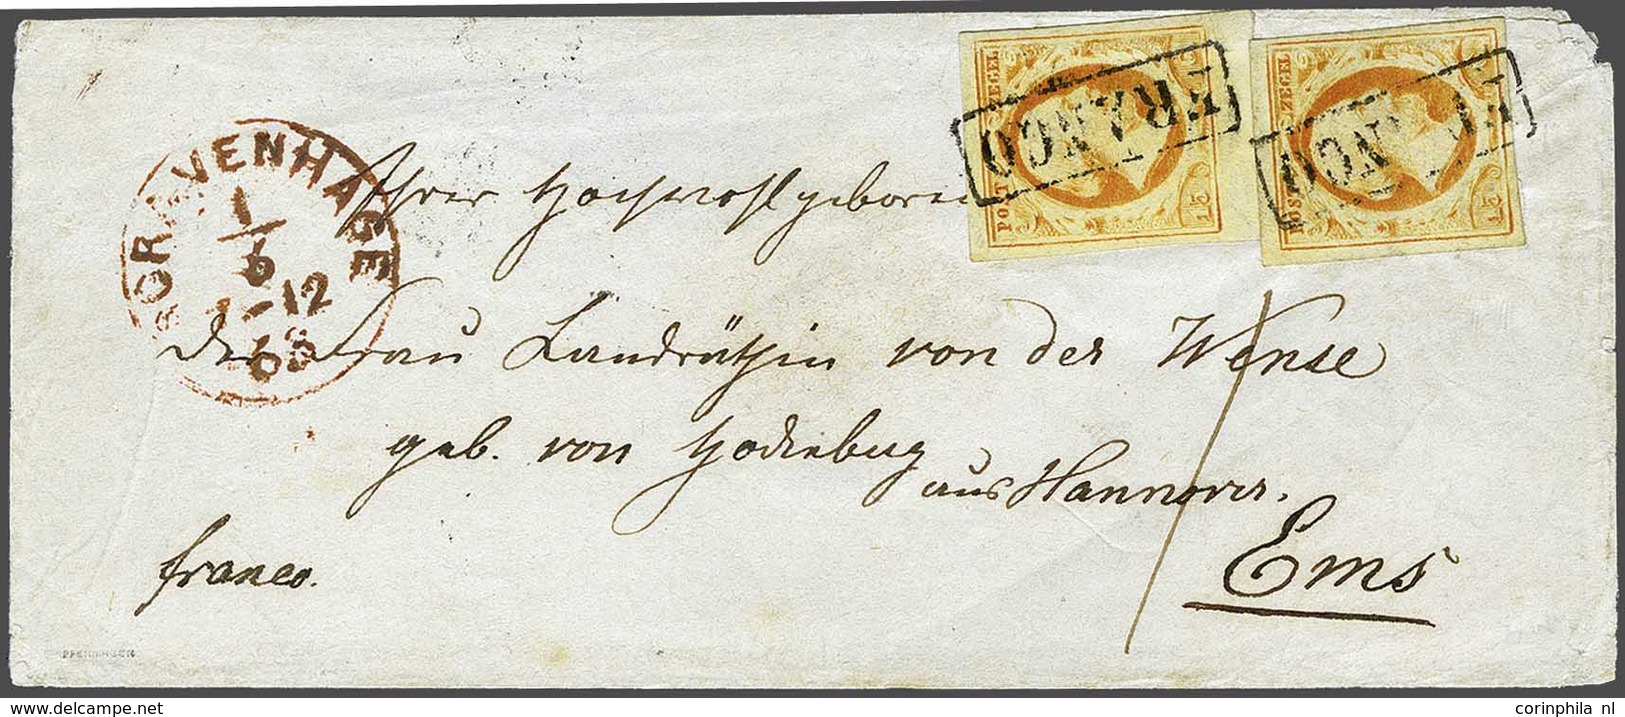 FRANCO
FRANCO
POST ZEGEL
POST ZEGEL
15
15
'SGRAVENHAGE
1
6
12
63
Ihrer Hochwohlgeboren
der Frau Landräthin von der Wense
geb. von
aus Hannover.
franco.
Ems
PFENNINGER
corinphila nl